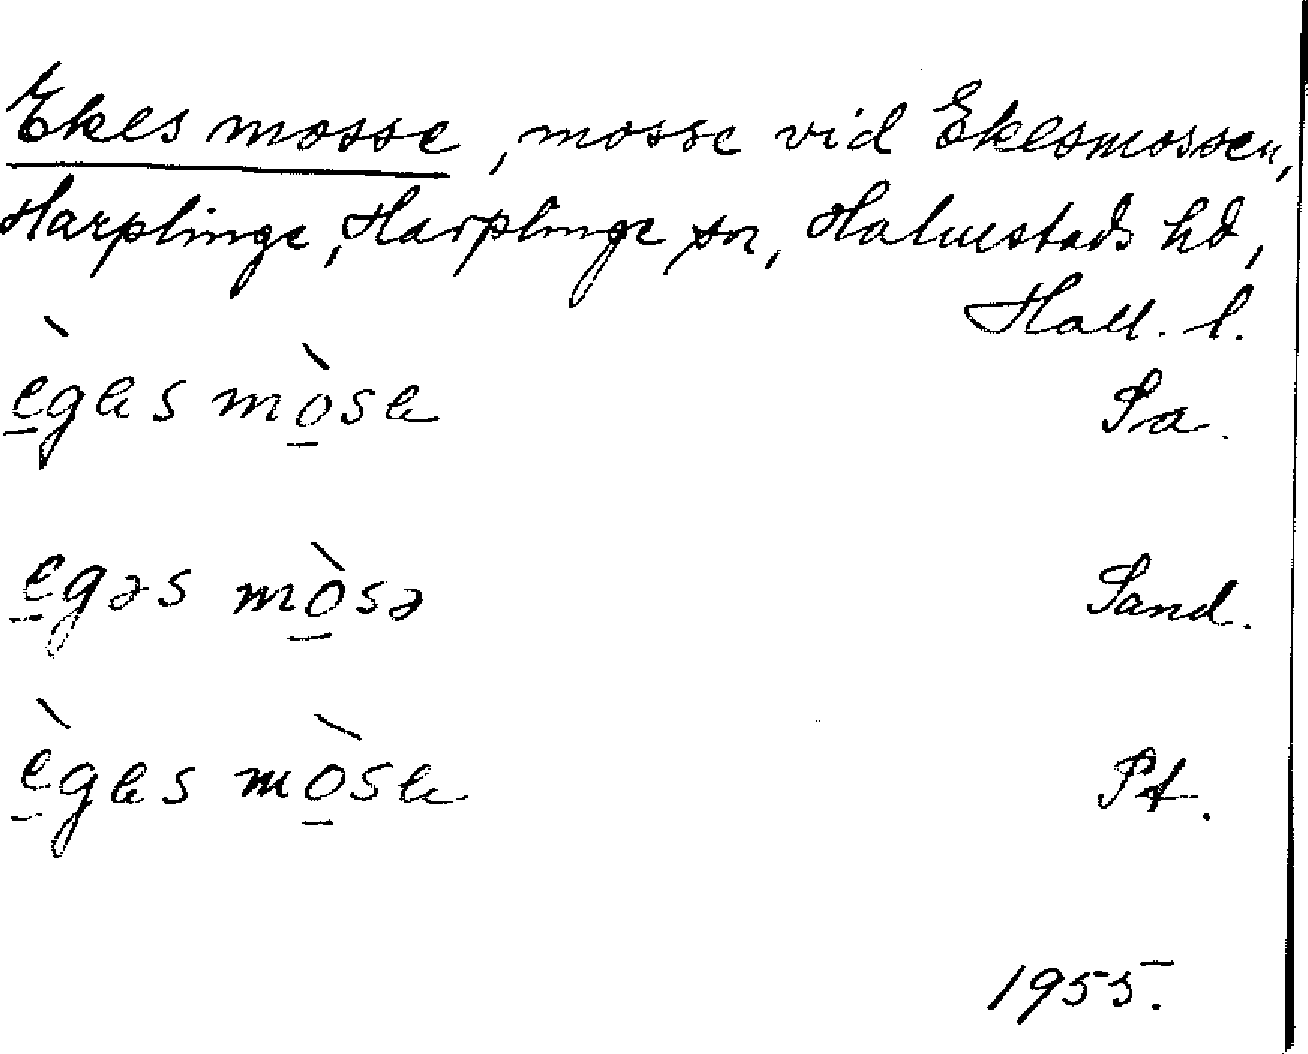 Ekes mosse, mosse vid Ekesmossen,
Harplinge, Harplinge sn, Halmstads hd,
Hall. l.
è̱gɐs mò̱sɐ Sa.
e̱gəs mò̱sə Sand.
è̱gɐs mò̱sɐ Pt.
1955.